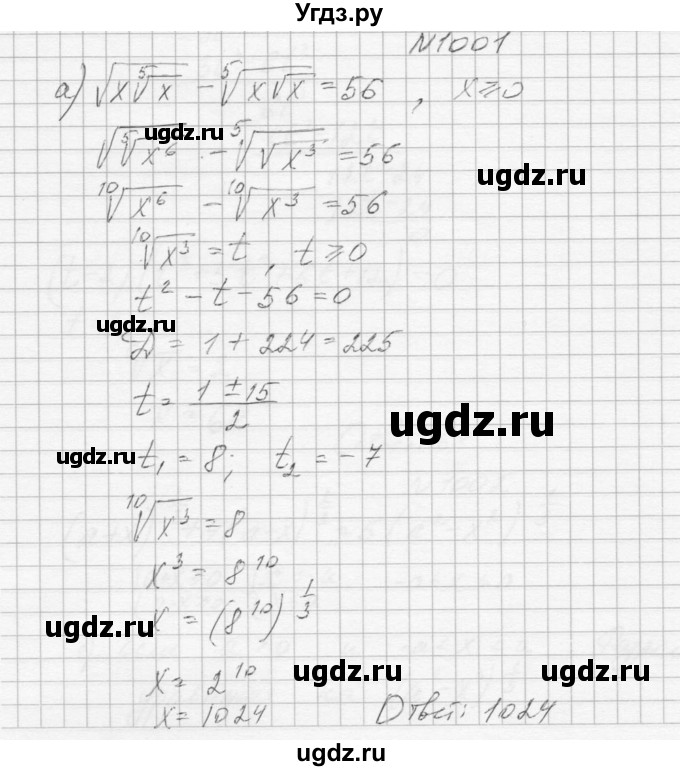 Угдз.ру
N1001
а) √(x⁵√x) - ⁵√(x√x) = 56 , x ⩾ 0
ugdz.ru
√(⁵√x⁶) - ⁵√(√x³) = 56
ugdz.ru
¹⁰√x⁶ - ¹⁰√x³ = 56
¹⁰√x³ = t, t ⩾ 0
t² - t - 56 = 0
ugdz.ru
D = 1 + 224 = 225
t = (1 ± 15)/2
ugdz.ru
ugdz.ru
t₁ = 8; t₂ = -7
¹⁰√x³ = 8
x³ = 8¹⁰
x = (8¹⁰)^(1/3)
ugdz.ru
ugdz.ru
x = 2¹⁰
x = 1024 Ответ: 1024
ugdz.ru